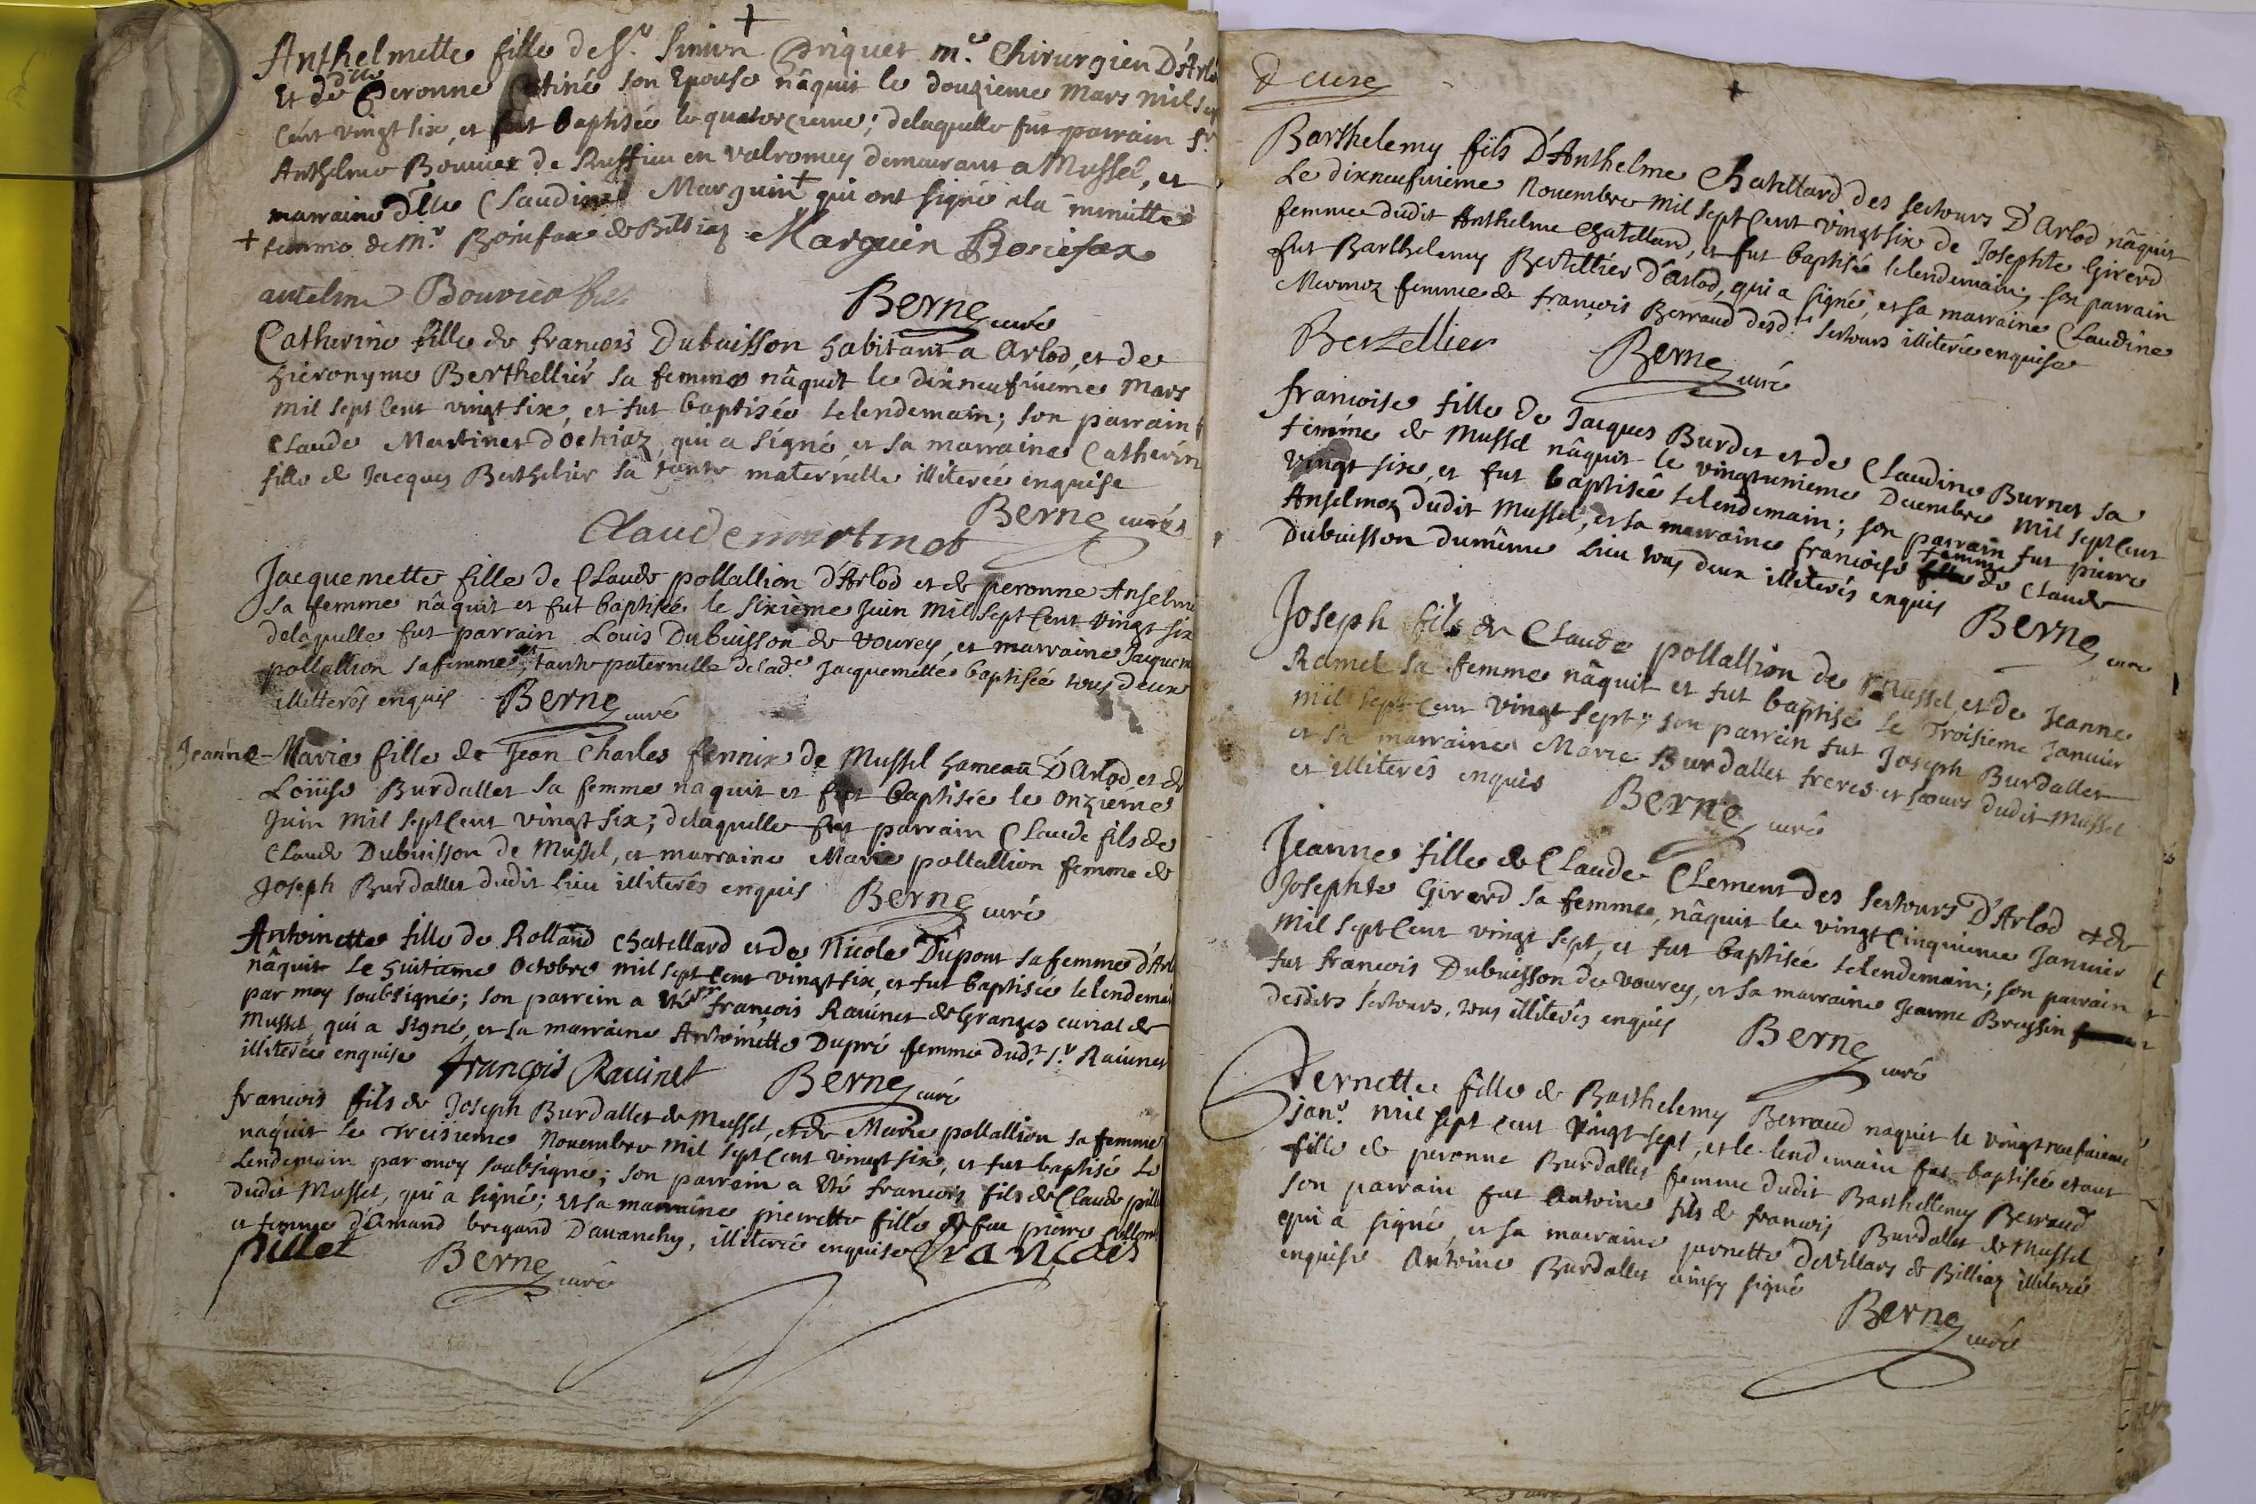 Anthelmette fille de Sr. Simon Priquet me. Chirurgien D'Arlo
Et de dlle Peronne son Epouse nâquit le douzieme Mars mil sep
cent vingt six, et fut baptisée le quatorzieme; de laquelle fut parrain Sr.
Anthelme Bouvier de Ruffieu en valromey demeurant a Mussel, et
marraine dlle Claudine Marguin + qui ont signé a la minutte
+ femme de Mr. Bonifax de Billiaz Marguin Bonifax
antelme Bouvier
Berne curé
Catherine fille de francois Dubuisson habitant a Arlod, et de
hieronyme Berthellier sa femme nâquit le dixneufvieme Mars
mil sept cent vingt six, et fut baptisée le lendemain; son parrain f
Claude Martinet d'ochiaz, qui a signé, et sa marraine Catherin
fille de Jacques Berthelier sa tante maternelle illiterée enquise
Berne curé
Claude martinet
Jacquemette fille de Claude pollallion d'Arlod et de peronne Anselme
sa femme nâquit et fut baptisée le sixième Juin mil sept cent vingt six
de laquelle fut parrain Louis Dubuisson de vourey, et marraine Jacquem
pollallion sa femme, et tante paternelle de lade. Jacquemette baptisée tous deux
illitterés enquis Berne curé
Jeanne-Marie fille de Jean Charles fennix de Mussel hameau D'Arlod et de
Loüise Burdallet sa femme naquit et fut baptisée le onzième
Juin mil sept cent vingt six; de laquelle fut parrain Claude fils de
Claude Dubuisson de Mussel, et marraine Marie pollallion femme de
Joseph Burdallet dudit Lieu illiterés enquis Berne curé
Antoinette fille de Rolland Chatellard et de Nicole Dupont sa femme d'Arl
nâquit le huitieme octobre mil sept cent vingt six, et fut baptisée le lendemai
par moy soubsigné; son parrein a été sr françois Ravinet de Granges curial de
Mussel, qui a signé, et sa marraine Antoinette Dupré femme dudt. Sr. Ravinet
illiterée enquise françois Ravinet Berne curé
francois fils de Joseph Burdallet de Mussel, et de Marie pollallion sa femme
nâquit le treizieme novembre mil sept cent vingt six, et fut baptisé le
Lendemain par moy soubsigne; son parrein a été francois fils de Claude pill
dudit Mussel, qui a signé; et sa marraine pierrette fille de feu pierre
et femme d'Amand bregand D'avanchy, illiterée enquise francois
pillet Berne curé
& cure
Barthelemy fils D'Anthelme Chatellard des sertours D'Arlod nâquit
Le dixneufvieme Novembre mil sept cent vingt six de Josephte Girerd
femme dudit Anthelme Chatellard, et fut baptisé le lendemain; son parrain
fut Barthelemy Bertellier D'Arlod, qui a signé, et sa marraine Claudine
Mermoz femme de françois Berraud desd.ts sertours illiterée enquise
Bertellier Berne curé
francoise fille de Jacques Burdet et de Claudine Burnet sa
femme de Mussel nâquit le vingtunieme Decembre mil sept cent
vingt six, et fut baptisée le lendemain; son parrain fut pierre
Anselmoz dudit Mussel, et sa marraine francoise femme de Claude
Dubuisson du même Lieu tous deux illiterés enquis Berne curé
Joseph fils de Claude pollallion de Mussel, et de Jeanne
Ramel sa femme nâquit et fut baptisé le Troisieme Janvier
mil sept cent vingt sept; son parrein fut Joseph Burdallet
et sa marraine Marie Burdallet freres et soeurs dudit Mussel
et illiterés enquis Berne curé
Jeanne fille de Claude Clement des sertours D'Arlod et de
Josephte Girerd sa femme, nâquit le vingt cinquieme Janvier
mil sept cent vingt sept, et fut baptisée le lendemain; son parrain
fut francois Dubuisson de vourey, et sa marraine Jeanne Breysin
desdits sertours, tous illiterés enquis Berne curé
Pernette fille de Barthelemy Berraud naquit le vingt neufvieme
janv. mil sept cent vingt sept, et le lendemain fut baptisée etant
fille de peronne Burdallet femme dudit Barthellemy Berraud
son parrain fut antoine fils de francois Burdallet de Mussel
qui a signé, et sa marraine pernette Devillars de Billiaz illiterée
enquise Antoine Burdallet ainsy signé
Berne curé